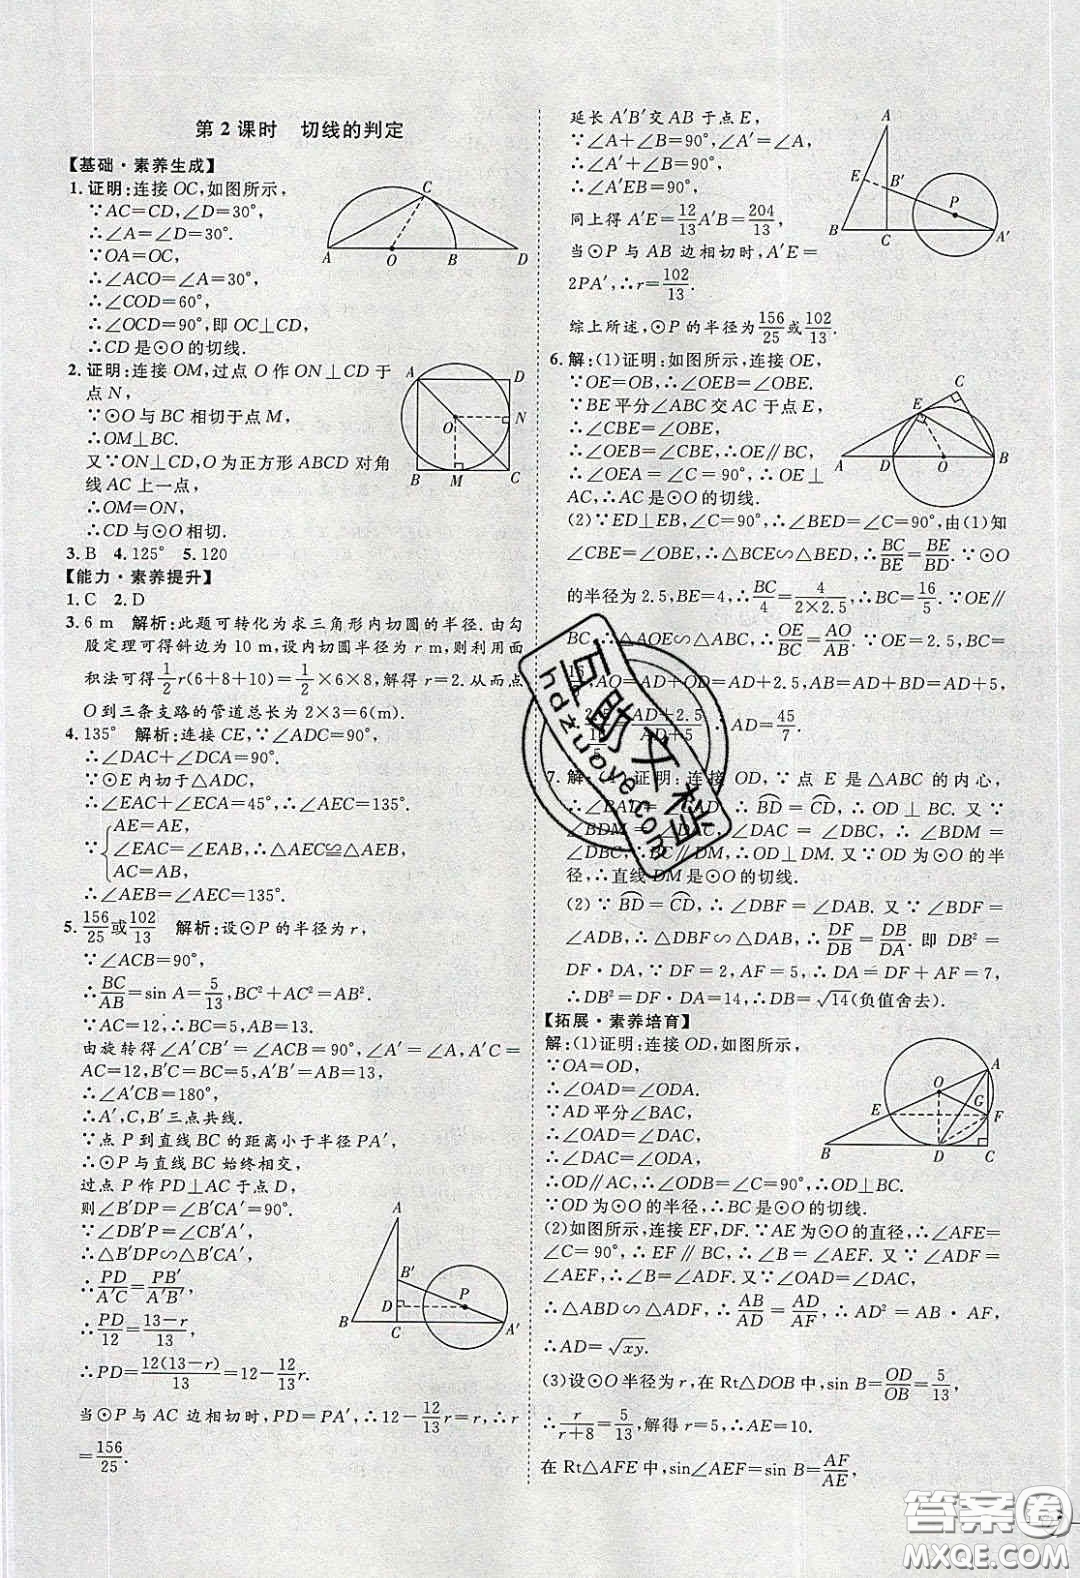 第2课时　切线的判定
【基础·素养生成】
1.证明:连接OC,如图所示,
∵AC=CD,∠D=30°,
∴∠A=∠D=30°.
∵OA=OC,
∴∠ACO=∠A=30°,
∴∠COD=60°,
∴∠OCD=90°,即OC⊥CD,
∴CD是⊙O的切线.
2.证明:连接OM,过点O作ON⊥CD于
点N,
∵⊙O与BC相切于点M,
∴OM⊥BC.
又∵ON⊥CD,O为正方形ABCD对角
线AC上一点,
∴OM=ON,
∴CD与⊙O相切.
3.B　4.125°　5.120
【能力·素养提升】
1.C　2.D
3.6 m　解析:此题可转化为求三角形内切圆的半径.由勾
股定理可得斜边为10 m,设内切圆半径为r m,则利用面
积法可得1/2r(6+8+10)=1/2×6×8,解得r=2.从而点
O到三条支路的管道总长为2×3=6(m).
4.135°　解析:连接CE,∵∠ADC=90°,
∴∠DAC+∠DCA=90°.
∵⊙E内切于△ADC,
∴∠EAC+∠ECA=45°,∴∠AEC=135°.
∵{AE=AE,
∠EAC=∠EAB,∴△AEC≌△AEB,
AC=AB,
∴∠AEB=∠AEC=135°.
5.156/25或102/13　解析:设⊙P的半径为r,
∵∠ACB=90°,
∴BC/AB=sin A=5/13,BC²+AC²=AB².
∵AC=12,∴BC=5,AB=13.
由旋转得∠A′CB′=∠ACB=90°,A′C=
AC=12,B′C=BC=5,A′B′=AB=13,
∴∠A′CB=180°,
∴A′,C,B′三点共线.
∵点P到直线BC的距离小于半径PA′,
∴⊙P与直线BC始终相交,
过点P作PD⊥AC于点D,
则∠B′DP=∠B′CA′=90°.
∵∠DB′P=∠CB′A′,
∴△B′DP∽△B′CA′,
∴PD/A′C=PB′/A′B′,
∴PD/12=13-r/13,
∴PD=12(13-r)/13=12-12/13r.
当⊙P与AC边相切时,PD=PA′,∴12-12/13r=r,∴r
=156/25.
A
O
B
C
D
A
D
O
N
B
M
C
A
B′
D
P
B
C
A′
延长A′B′交AB于点E,
∵∠A+∠B=90°,∠A′=∠A,
∴∠A′+∠B=90°,
∴∠A′EB=90°,
同上得A′E=12/13A′B=204/13.
当⊙P与AB边相切时,A′E=
2PA′,∴r=102/13.
综上所述,⊙P的半径为156/25或102/13.
6.解:(1)证明:如图所示,连接OE,
∵OE=OB,∴∠OEB=∠OBE.
∵BE平分∠ABC交AC于点E,
∴∠CBE=∠OBE,
∴∠OEB=∠CBE,∴OE∥BC,
∴∠OEA=∠C=90°,∴OE⊥
AC,∴AC是⊙O的切线.
(2)∵ED⊥EB,∠C=90°,∴∠BED=∠C=90°,由(1)知
∠CBE=∠OBE,∴△BCE∽△BED,∴BC/BE=BE/BD.∵⊙O
的半径为2.5,BE=4,∴BC/4=4/2×2.5,∴BC=16/5.∵OE∥
BC,∴△AOE∽△ABC,∴OE/BC=AO/AB.∵OE=2.5,BC=
16/5,AO=AD+OD=AD+2.5,AB=AD+5,
∴2.5/16/5=AD+2.5/AD+5,∴AD=45/7.
7.解:(1)证明:连接OD,∵点E是△ABC的内心,
∴∠BAD=∠CAD,∴BD=CD,∴OD⊥BC.又∵
∠BDM=∠DAC,∠DAC=∠DBC,∴∠BDM=
∠DBC,∴BC∥DM,∴OD⊥DM.又∵OD为⊙O的半
径,∴直线DM是⊙O的切线.
(2)∵BD=CD,∴∠DBF=∠DAB.又∵∠BDF=
∠ADB,∴△DBF∽△DAB,∴DF/DB=DB/DA.即DB²=
DF·DA.∵DF=2,AF=5,∴DA=DF+AF=7,
∴DB²=DF·DA=14,∴DB=√14(负值舍去).
【拓展·素养培育】
解:(1)证明:连接OD,如图所示,
∵OA=OD,
∴∠OAD=∠ODA.
∵AD平分∠BAC,
∴∠OAD=∠DAC,
∴∠DAC=∠ODA,
∴OD∥AC,∴∠ODB=∠C=90°,∴OD⊥BC.
∵OD为⊙O的半径,∴BC是⊙O的切线.
(2)如图所示,连接EF,DF.∵AE为⊙O的直径,∴∠AFE=
∠C=90°,∴EF∥BC,∴∠B=∠AEF.又∵∠ADF=
∠AEF,∴∠B=∠ADF.又∵∠OAD=∠DAC,
∴△ABD∽△ADF,∴AB/AD=AD/AF,∴AD²=AB·AF,
∴AD=√xy.
(3)设⊙O半径为r,在Rt△DOB中,sin B=OD/OB=5/13,
∴r/r+8=5/13,解得r=5,∴AE=10.
在Rt△AFE中,sin∠AEF=sin B=AF/AE,
A
E
B′
P
B
C
A′
C
E
A
D
O
B
A
O
E
G
F
B
D
C
互助文档
hdzuoye.com
答案圈
MXQE.COM